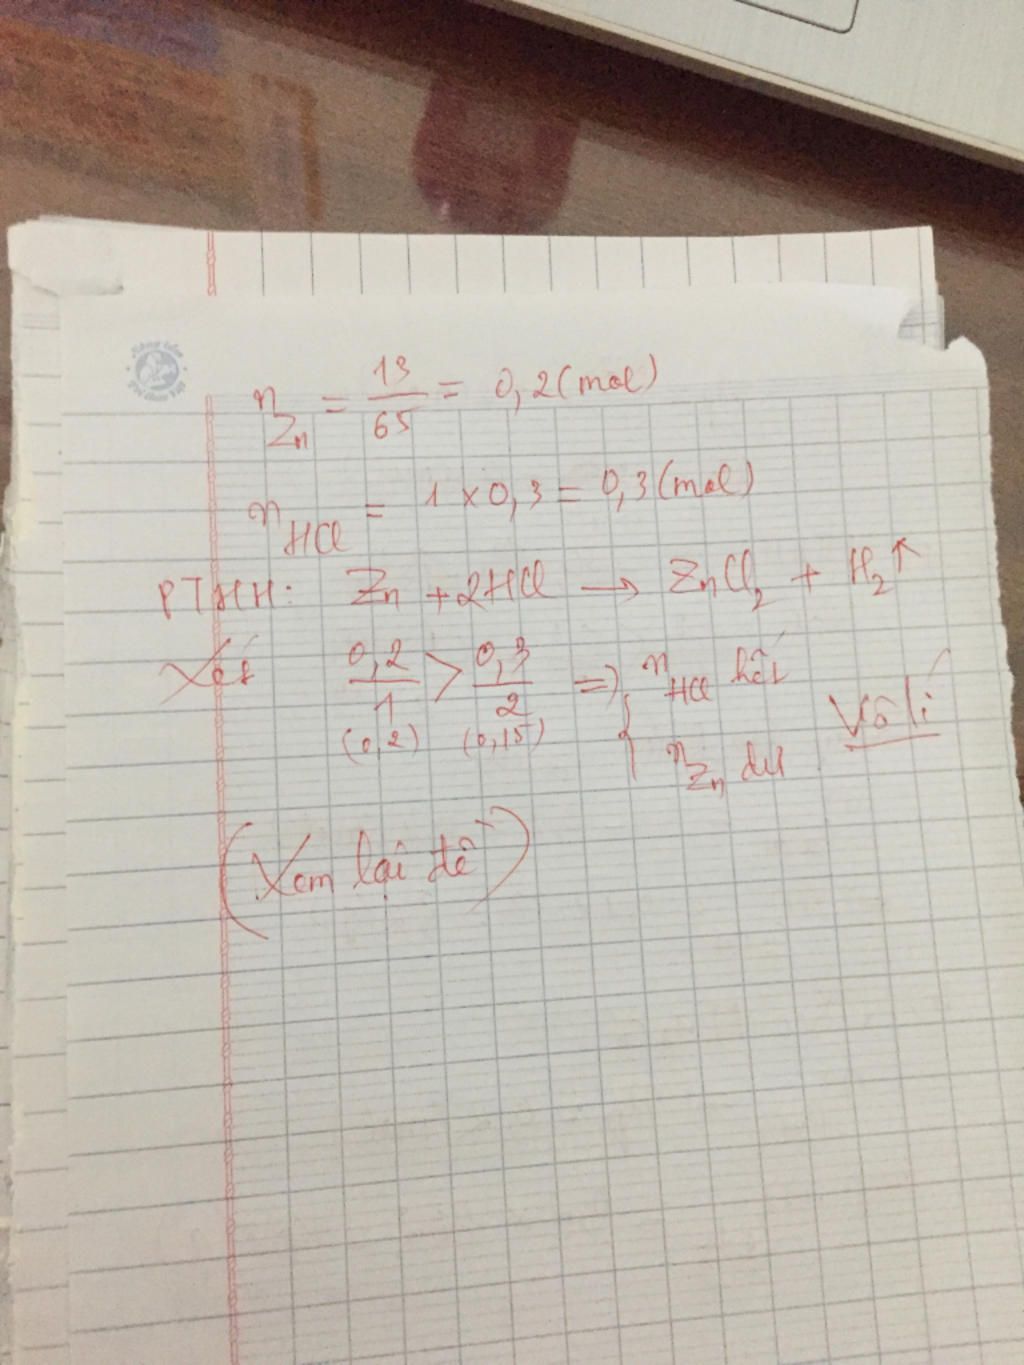 n Zn = 13/65 = 0,2 (mol)
n HCl = 1 × 0,3 = 0,3 (mol)
PTHH: Zn + 2HCl → ZnCl₂ + H₂↑
Xét 0,2/1 > 0,3/2 => { n HCl hết
(0,2) (0,15) n Zn dư Vô lí
(Xem lại đề)